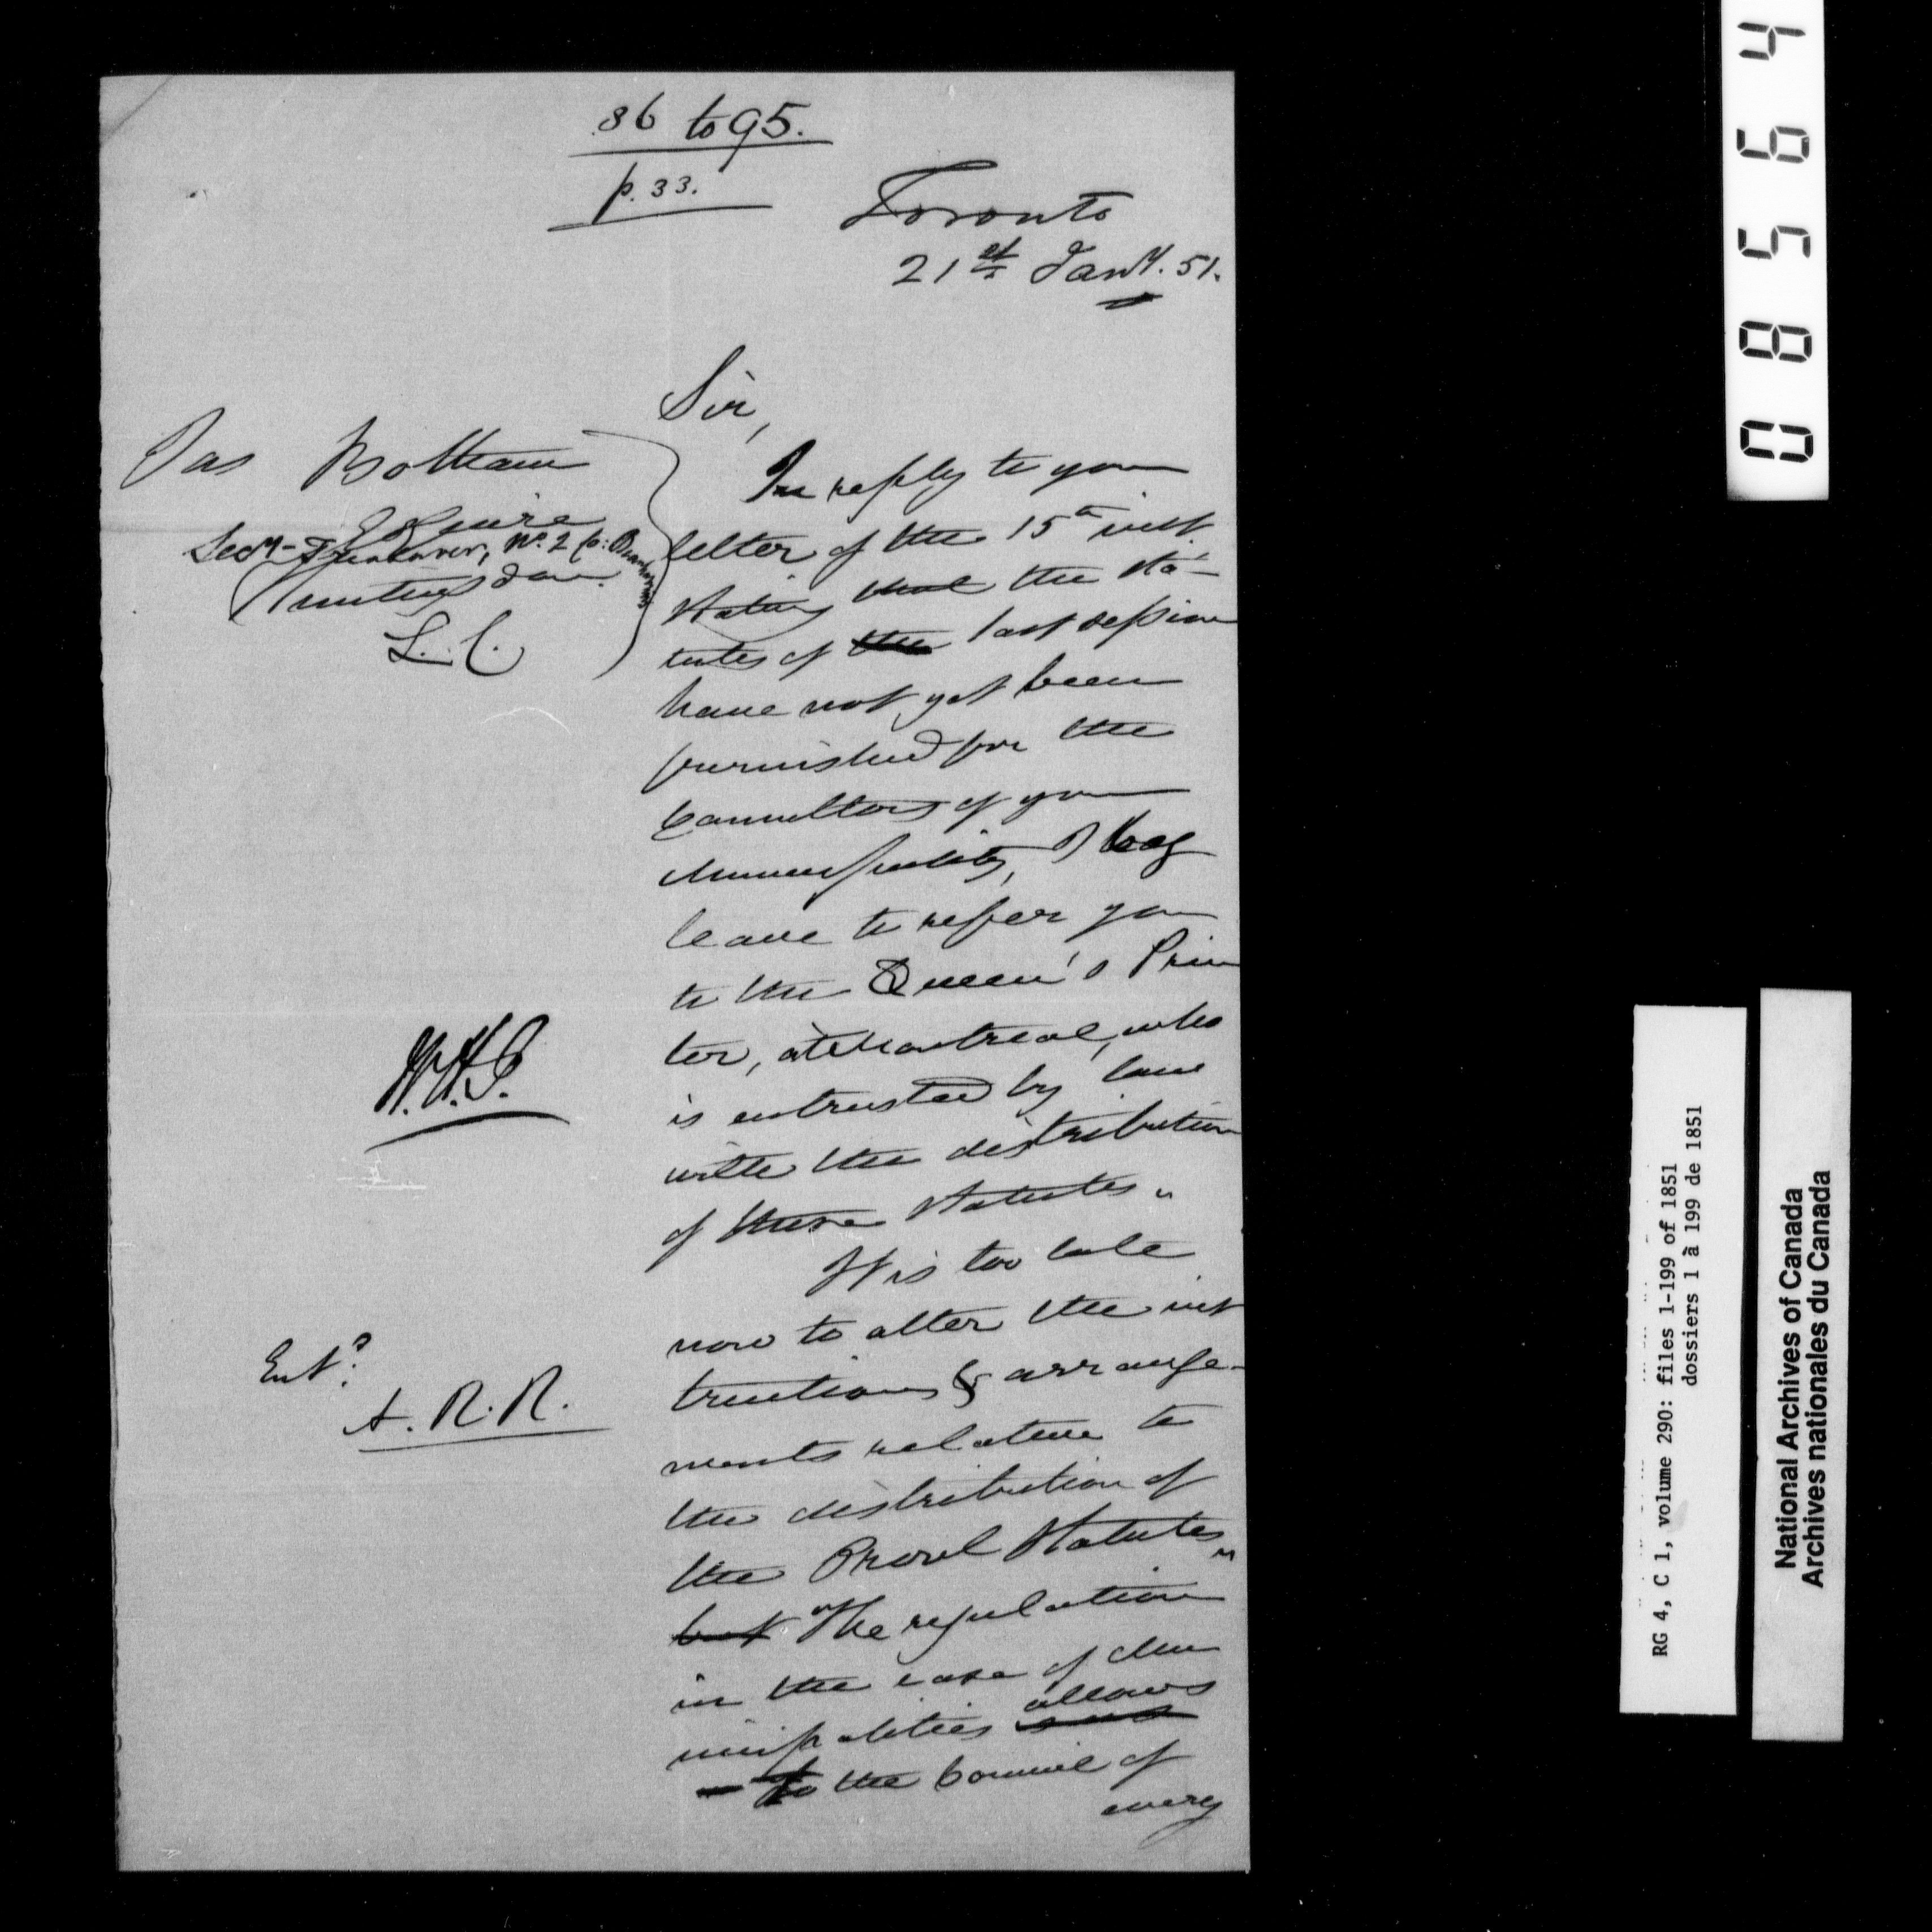 86 to 95.
p. 33.
Toronto
21st Jany. 51.
Sir,
Jas Botham
Esquire
Secy-Treasurer, No. 2 Co: Beauharnois
Huntingdon
L. C.
In reply to your
letter of the 15th inst.
stating that the sta-
tutes of the last session
have not yet been
furnished for the
Councillors of your
Municipality, I beg
leave to refer you
to the Queen's Prin
ter, at Montreal, who
is entrusted by law
with the distribution
of these Statutes.
It is too late
now to alter the ins
tructions & arrange-
ments relative to
the distribution of
the Provl Statutes
but The regulation
in the case of Mu
nicipalities allows
to the Council of
every
W.H.G.
Entd.
A. R. R.
08564
RG 4, C 1, volume 290: files 1-199 of 1851
dossiers 1 à 199 de 1851
National Archives of Canada
Archives nationales du Canada